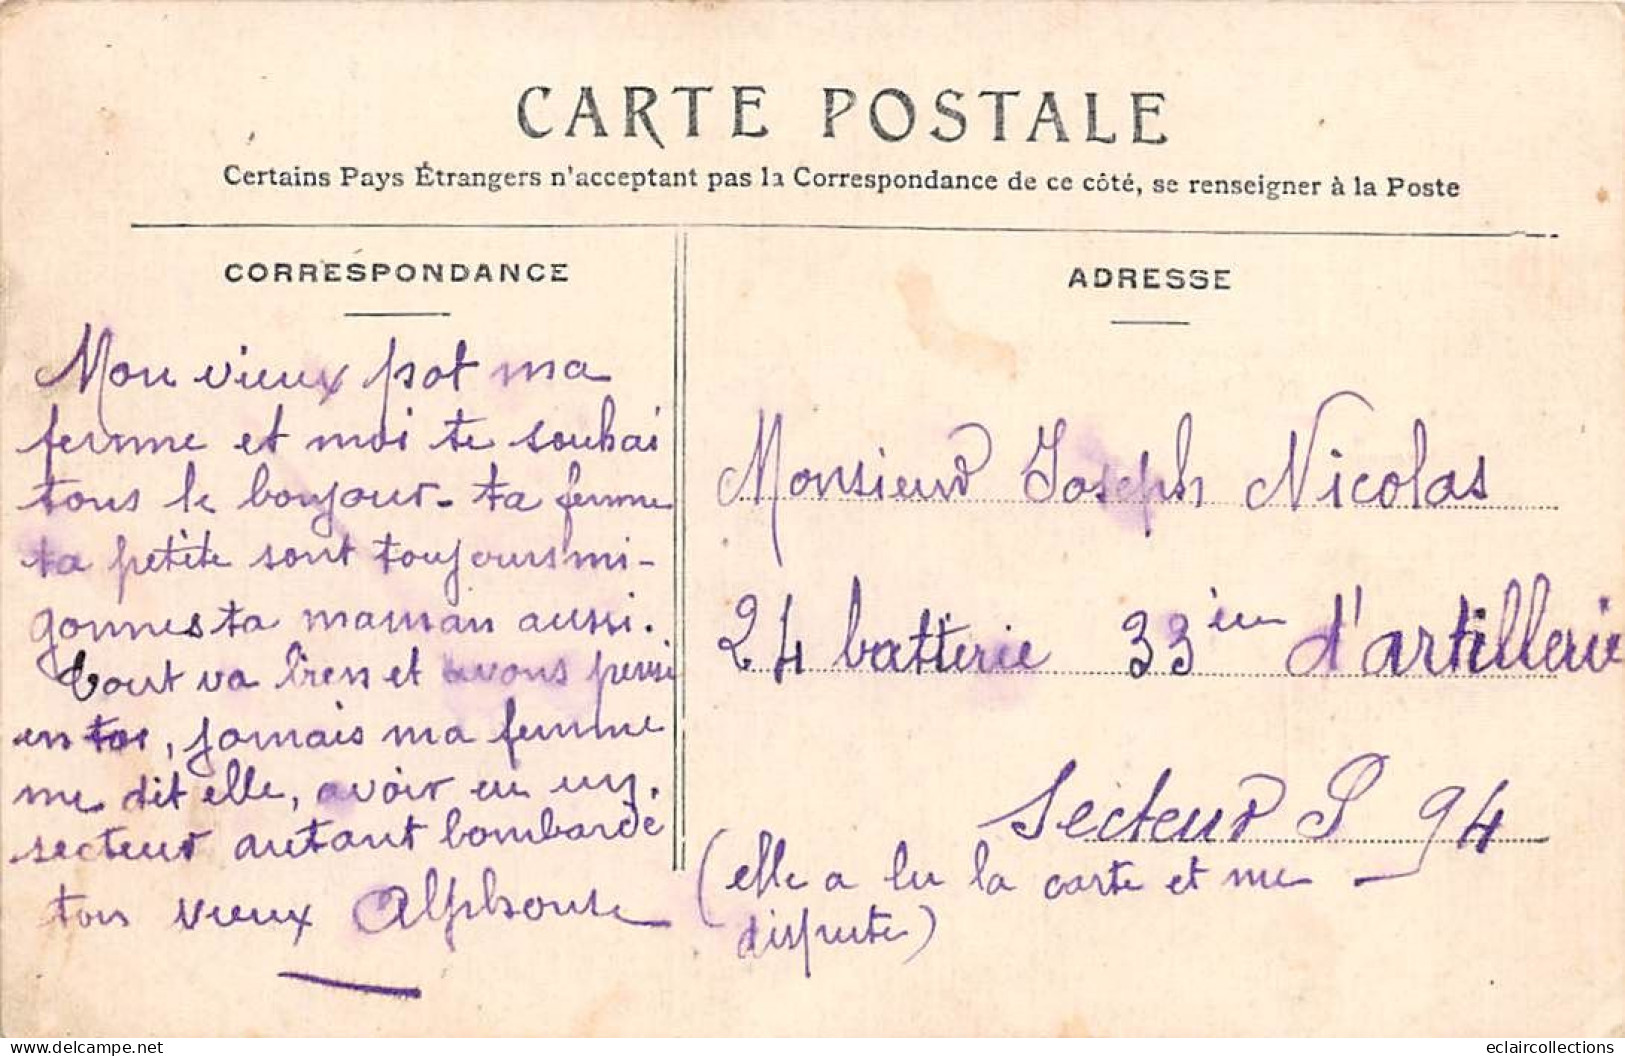 CARTE POSTALE
Certains Pays Étrangers n'acceptant pas la Correspondance de ce côté, se renseigner à la Poste
CORRESPONDANCE
Mon vieux pot ma
femme et moi te souhai
tons le bonjour - ta femme
ta petite sont toujours mi-
gonnes ta maman aussi.
tout va bien et avons pensé
en toi, jamais ma femme
me dit elle, avoir eu un
secteur autant bombardé
ton vieux Alphonse
ADRESSE
Monsieur Joseph Nicolas
24 batterie 33ième d'artillerie
Secteur P 94
(elle a lu la carte et me
dispute)
www.delcampe.net
eclaircollections